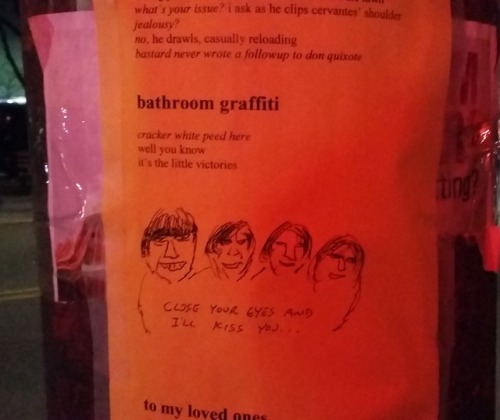 what's your issue? i ask as he clips cervantes' shoulder
jealousy?
no, he drawls, casually reloading
bastard never wrote a followup to don quixote
bathroom graffiti
cracker white peed here
well you know
it's the little victories
CLOSE YOUR EYES AND
I'LL KISS YOU...
to my loved ones
ting?